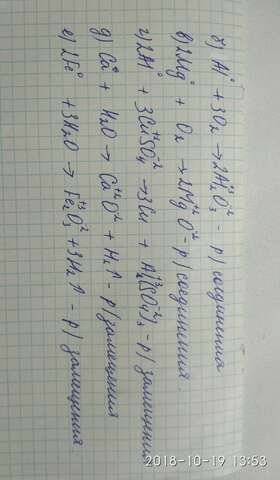 б) Al⁰ + 3O₂ → 2Al₂⁺³O₃⁻² - р/соединения
в) 2Mg⁰ + O₂ → 2Mg⁺²O⁻² - р/соединения.
г) 2Al⁰ + 3CuSO₄⁻² → 3Cu + Al₂⁺³(SO₄⁻²)₃ - р/замещения
д) Ca⁰ + H₂O → Ca⁺²O⁻² + H₂↑ - р/замещения
е) 2Fe⁰ + 3H₂O → Fe₂⁺³O₃⁻² + 3H₂↑ - р/замещения
2018-10-19 13:53